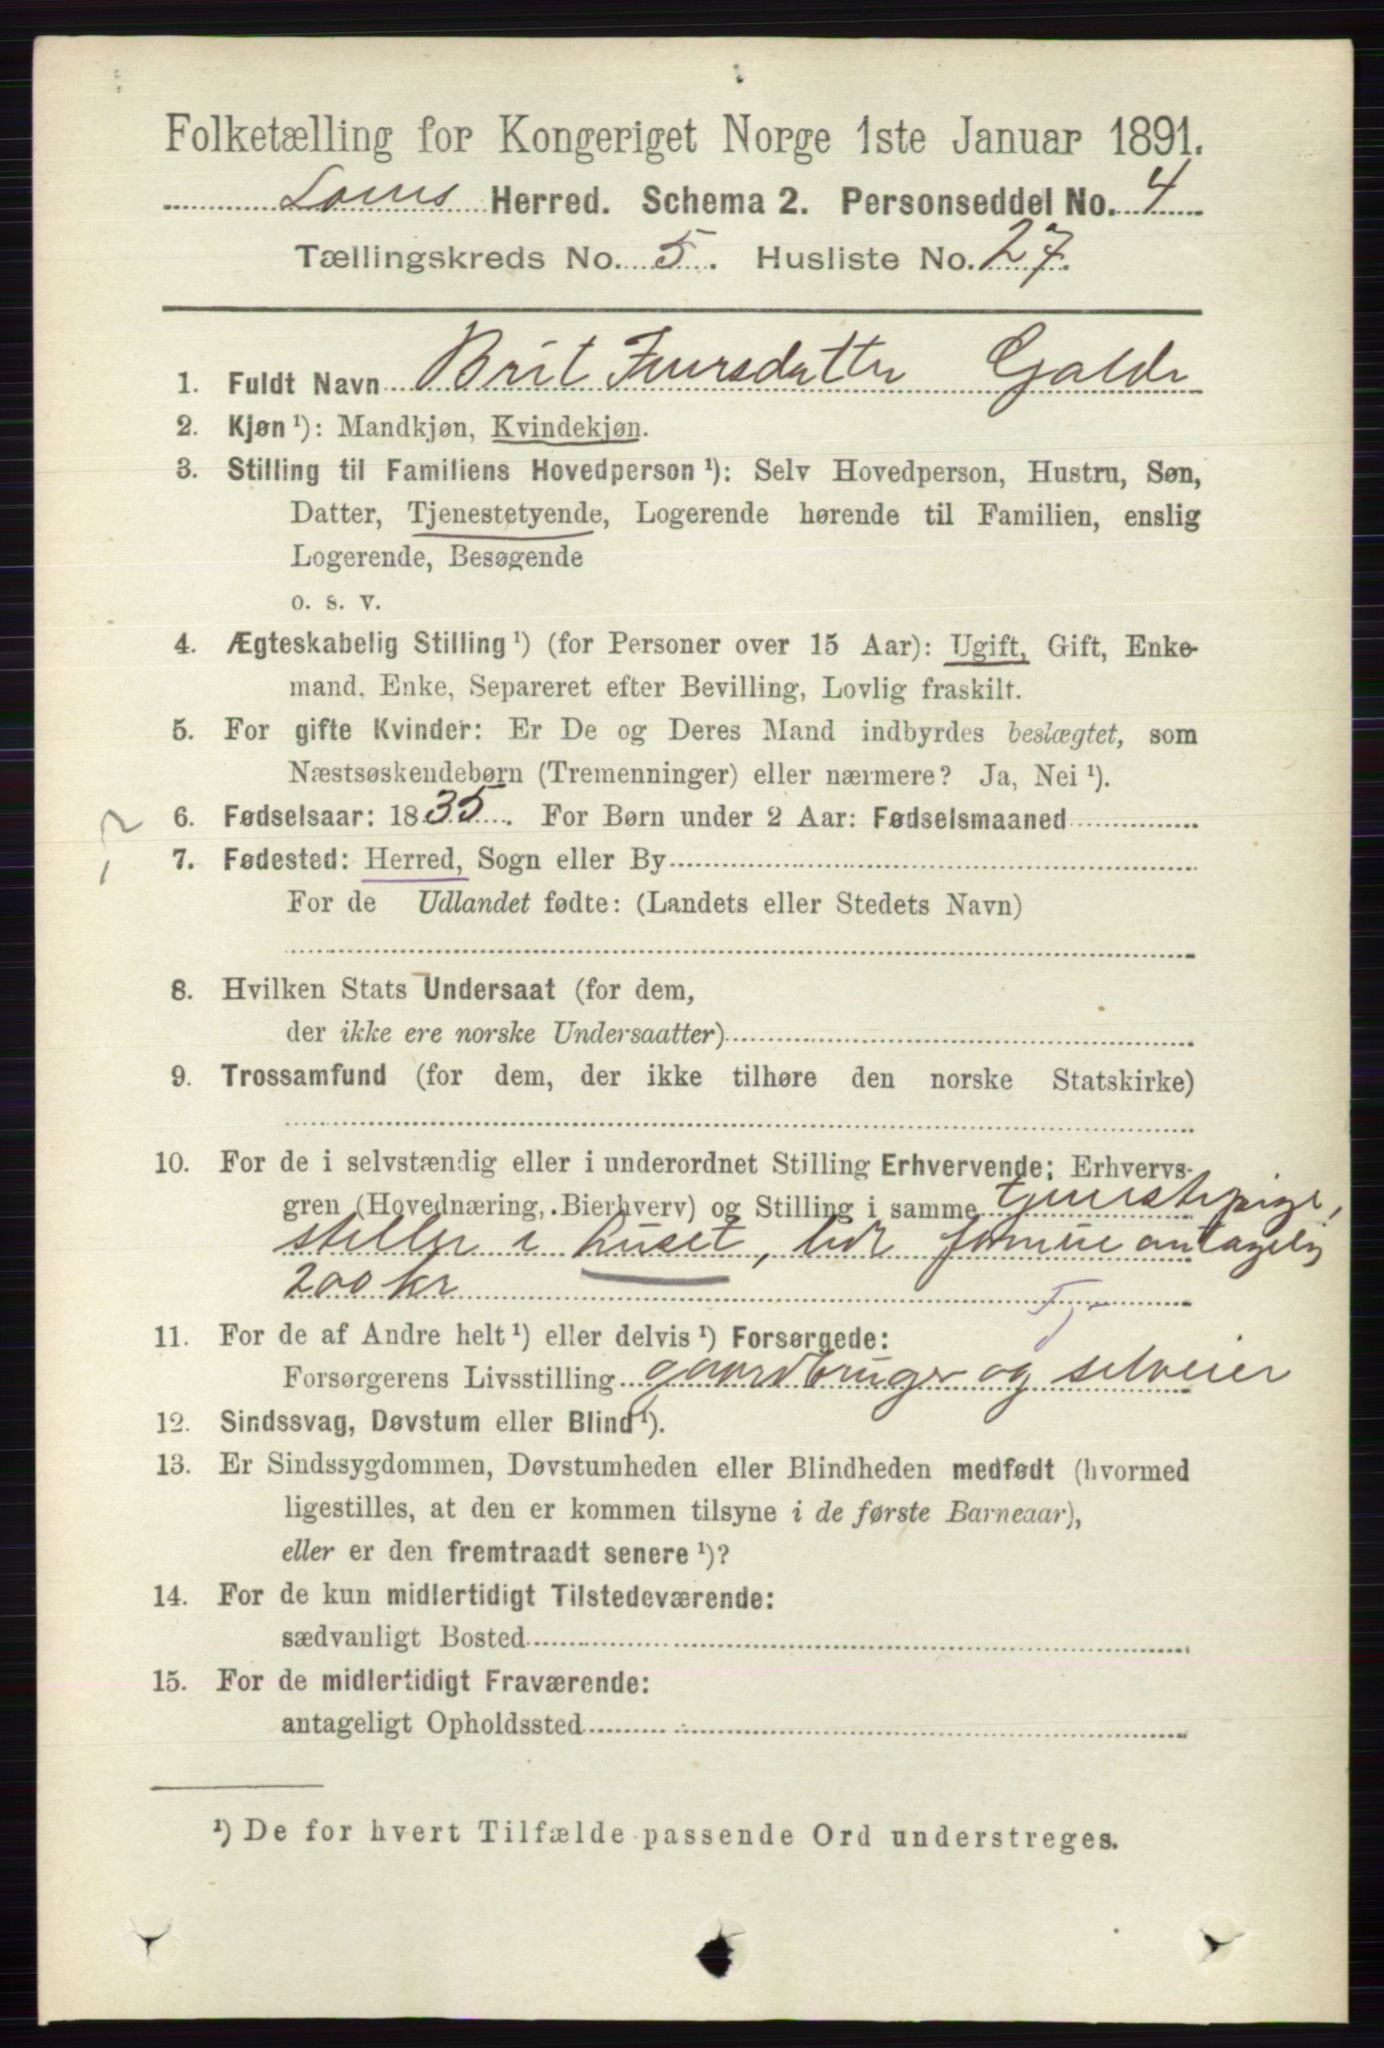 Folketælling for Kongeriget Norge 1ste Januar 1891.
Loms Herred. Schema 2. Personseddel No. 4
Tællingskreds No. 5. Husliste No. 27.
1. Fuldt Navn Brit Iversdatter Galde
2. Kjøn ¹): Mandkjøn, Kvindekjøn.
3. Stilling til Familiens Hovedperson ¹): Selv Hovedperson, Hustru, Søn,
Datter, Tjenestetyende, Logerende hørende til Familien, enslig
Logerende, Besøgende
o. s. v.
4. Ægteskabelig Stilling ¹) (for Personer over 15 Aar): Ugift, Gift, Enke-
mand, Enke, Separeret efter Bevilling, Lovlig fraskilt.
5. For gifte Kvinder: Er De og Deres Mand indbyrdes beslægtet, som
Næstsøskendebørn (Tremenninger) eller nærmere? Ja, Nei ¹).
6. Fødselsaar: 1835. For Børn under 2 Aar: Fødselsmaaned
7. Fødested: Herred, Sogn eller By
For de Udlandet fødte: (Landets eller Stedets Navn)
8. Hvilken Stats Undersaat (for dem,
der ikke ere norske Undersaatter)
9. Trossamfund (for dem, der ikke tilhøre den norske Statskirke)
10. For de i selvstændig eller i underordnet Stilling Erhvervende: Erhvervs-
gren (Hovednæring, Bierhverv) og Stilling i samme tjenstepige,
steller i huset, lidt formue antagelig
200 kr
Tj
11. For de af Andre helt ¹) eller delvis ¹) Forsørgede:
Forsørgerens Livsstilling gaardbruger og selveier
12. Sindssvag, Døvstum eller Blind ¹).
13. Er Sindssygdommen, Døvstumheden eller Blindheden medfødt (hvormed
ligestilles, at den er kommen tilsyne i de første Barneaar),
eller er den fremtraadt senere ¹)?
14. For de kun midlertidigt Tilstedeværende:
sædvanligt Bosted
15. For de midlertidigt Fraværende:
antageligt Opholdssted
¹) De for hvert Tilfælde passende Ord understreges.